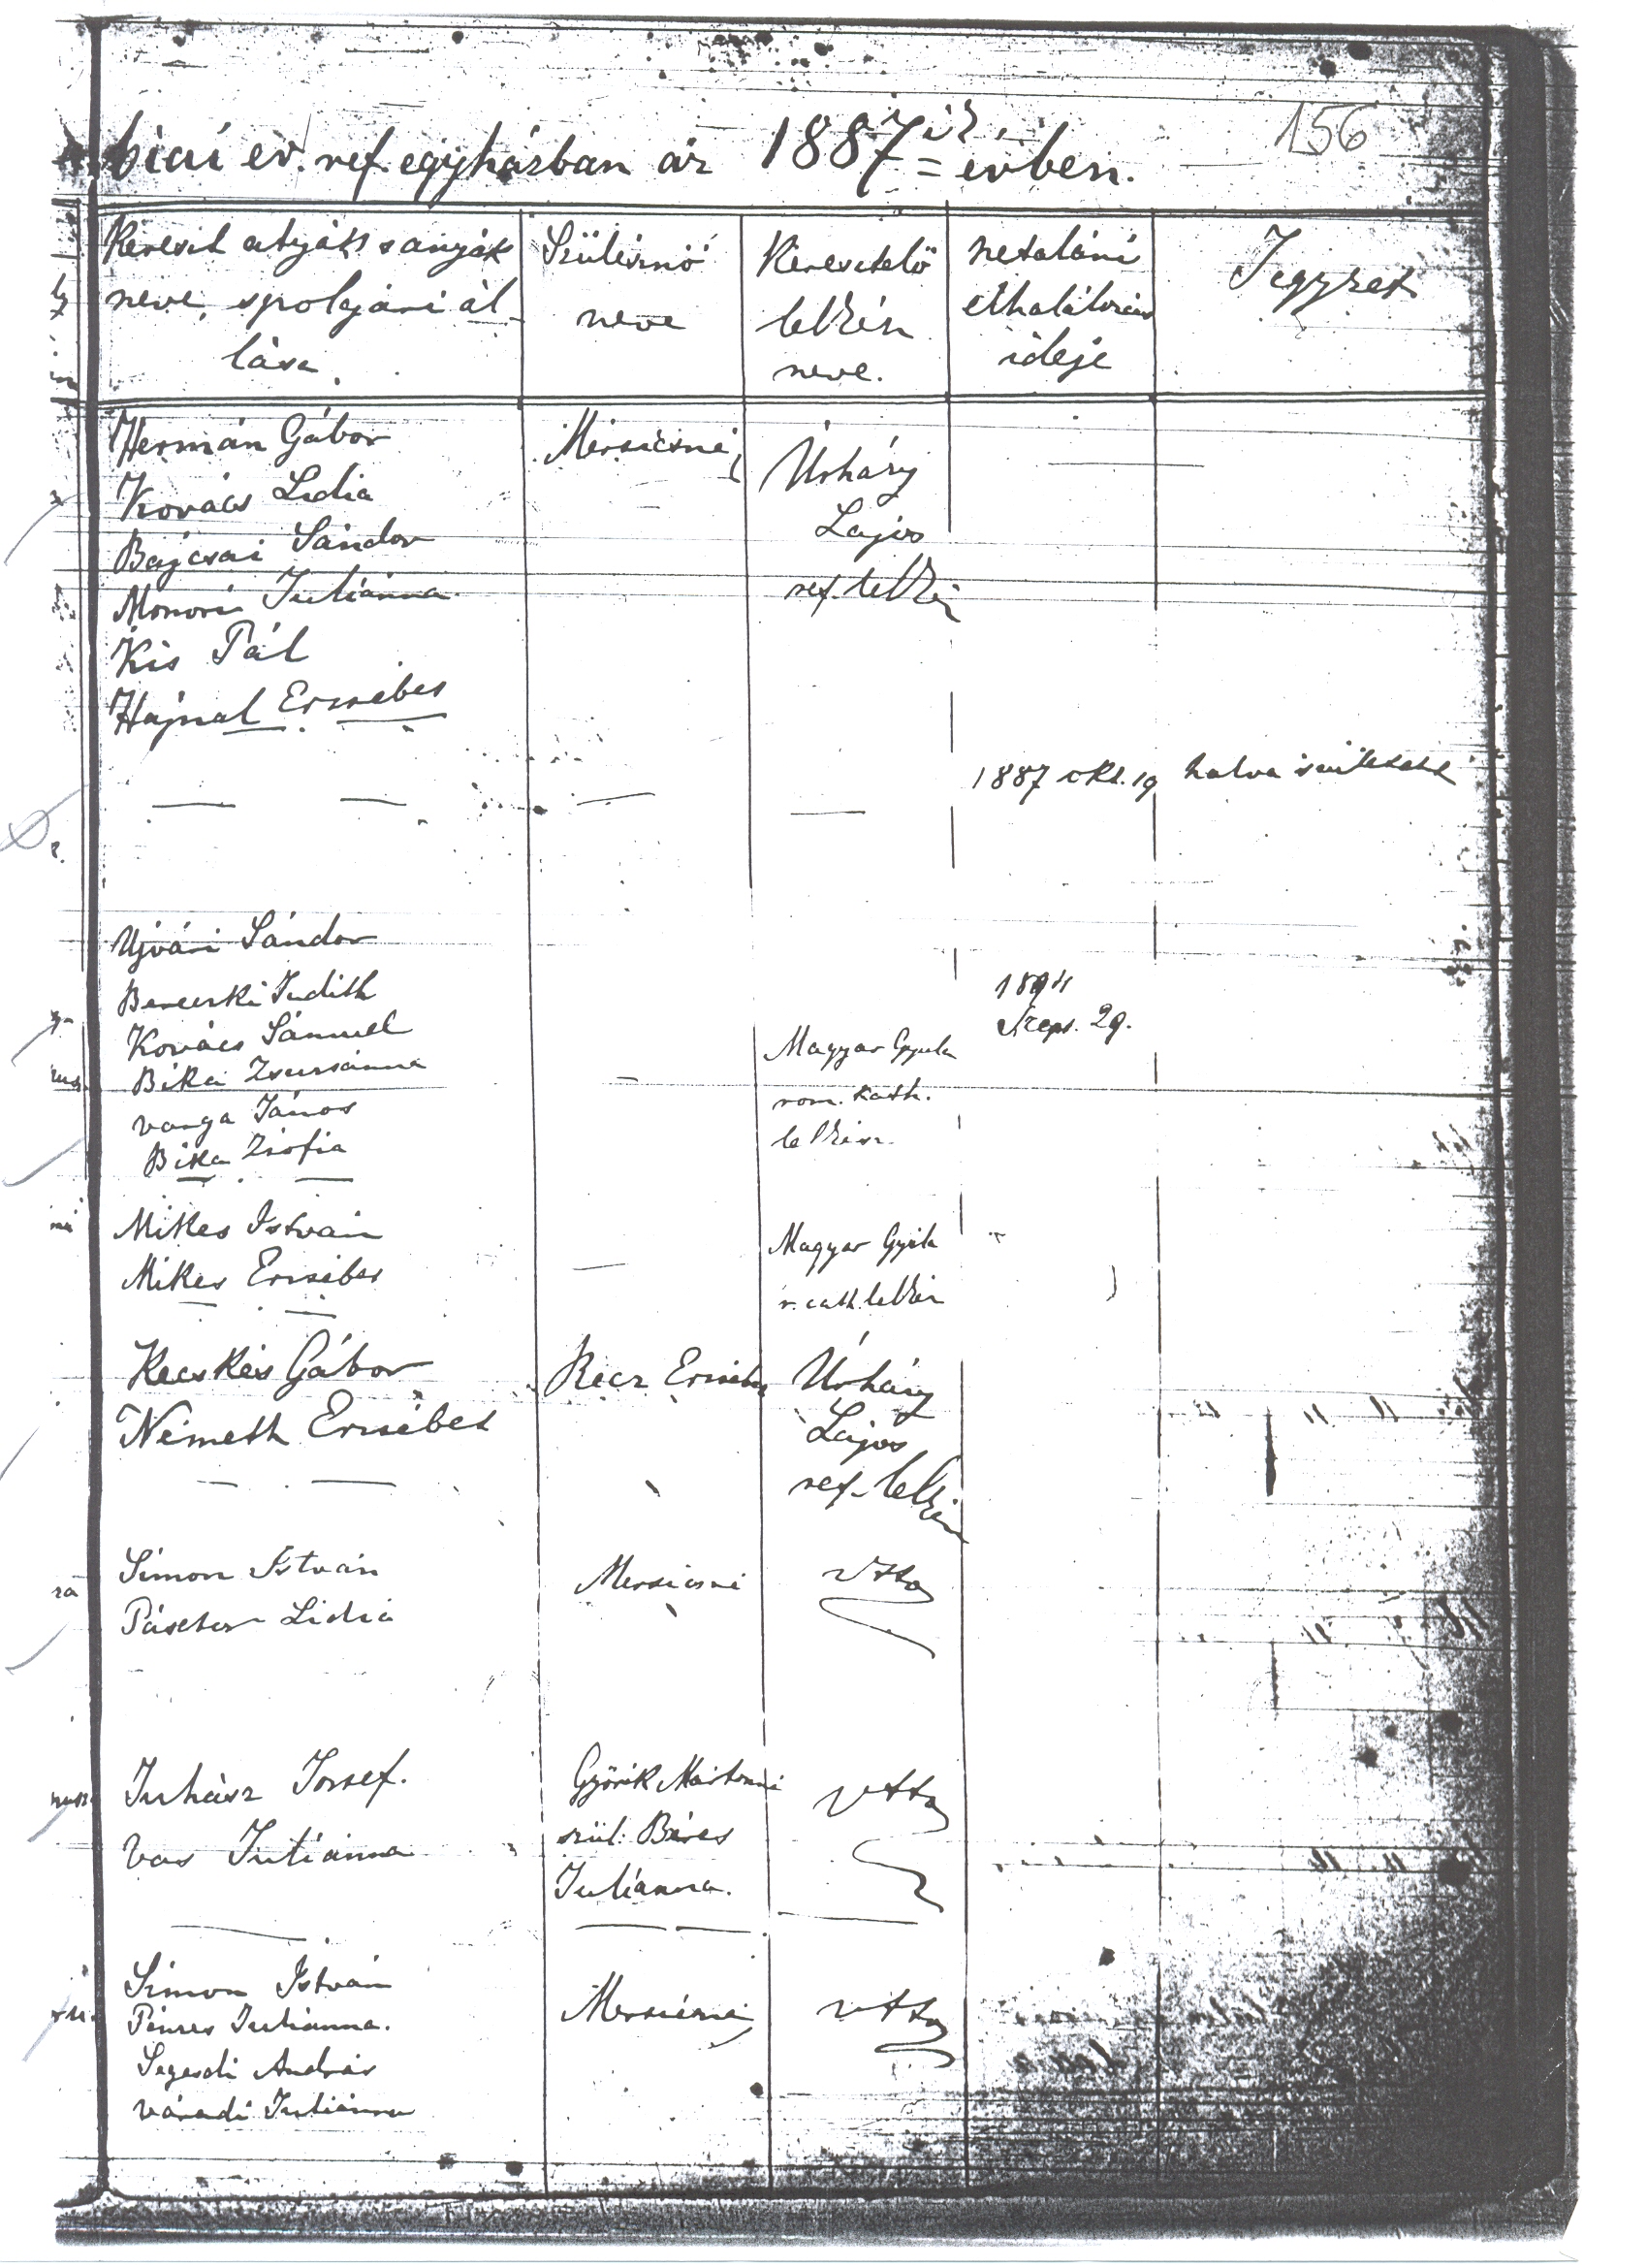 156
biai ev. ref. egyházban az 1887ik évben.
Kereszt atyák s anyák
neve, s polgári ál-
lása.
Szülésznő
neve
Keresztelő
lelkész
neve.
netaláni
elhalálozás
ideje
Jegyzet
Hermán Gábor
Kovács Lidia
Bajcsai Sándor
Monori Juliánna
Kis Pál
Hajnal Erzsébet
Úrházy
Lajos
ref. lelkész
1887 okt. 19
halva született
Ujvári Sándor
Bereczki Judith
Kovács Sámuel
Bika Zsuzsánna
Varga János
Bika Zsófia
Magyar Gyula
rom. kath.
lelkész.
1894
Szept. 29.
Mikes István
Mikes Erzsébet
Magyar Gyula
r. cath. lelkész
Kecskés Gábor
Németh Erzsébet
Rácz Erzsébet
Úrházy
Lajos
ref. lelkész
Simon István
Pásztor Lidia
utta
Juhász József.
Vas Juliánna
Györik Mártonné
szül: Béres
Juliánna.
utta
Simon István
Pénzes Juliánna.
Segesdi András
Váradi Juliánna
utta